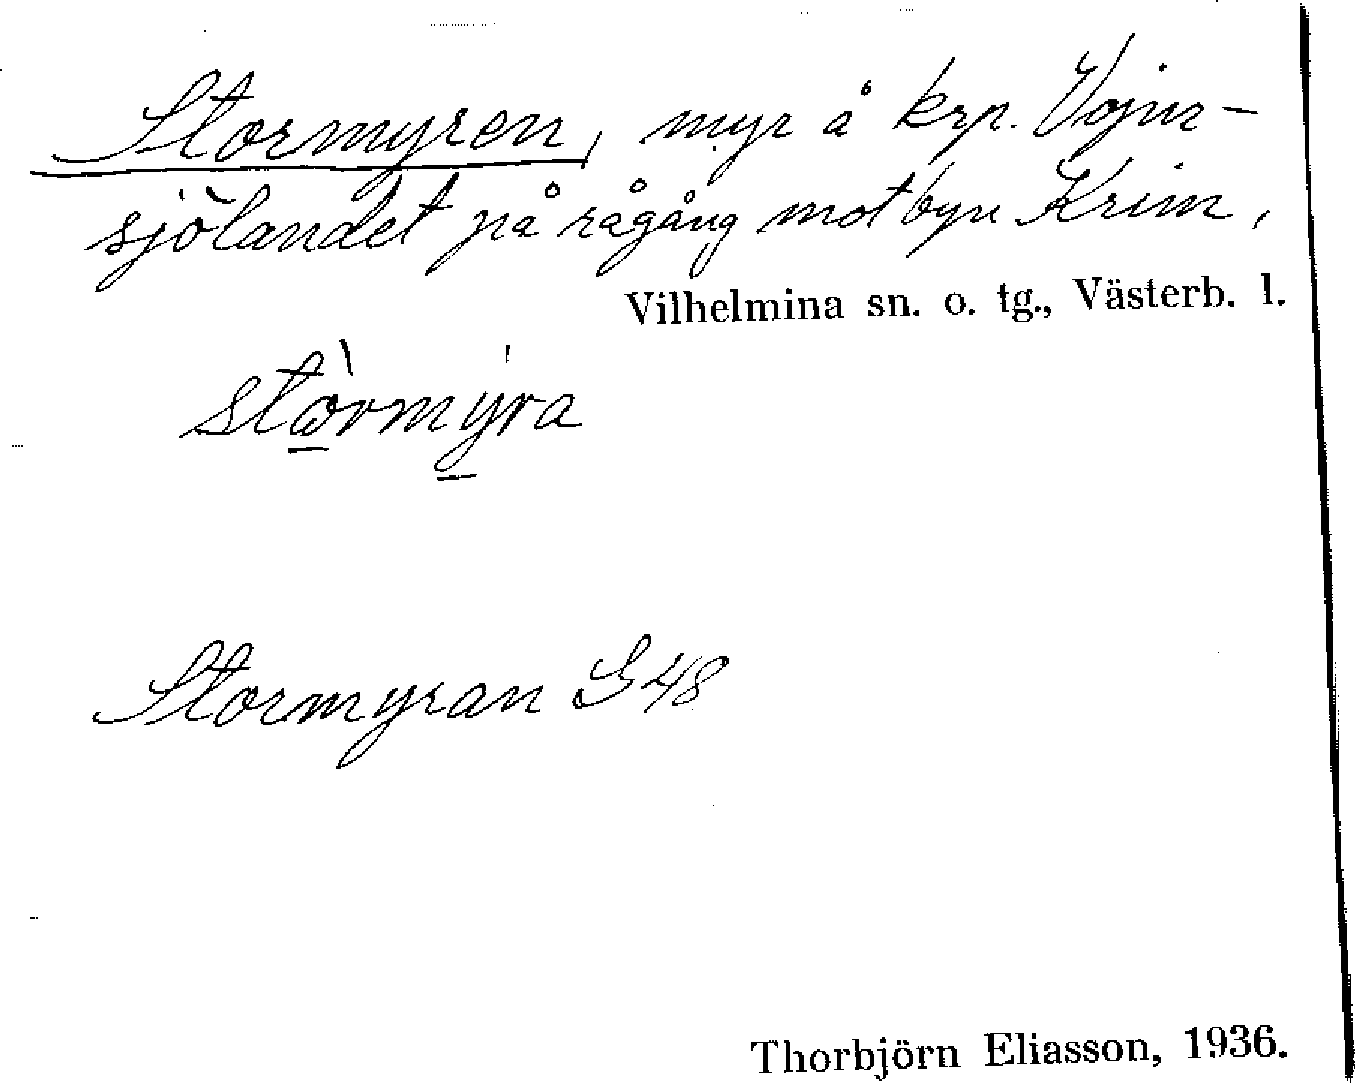 Stormyren, myr å krp. Vojm-
sjölandet på rågång mot byn Krim,
Vilhelmina sn. o. tg., Västerb. l.
stòrmýra
Stormyran G48
Thorbjörn Eliasson, 1936.